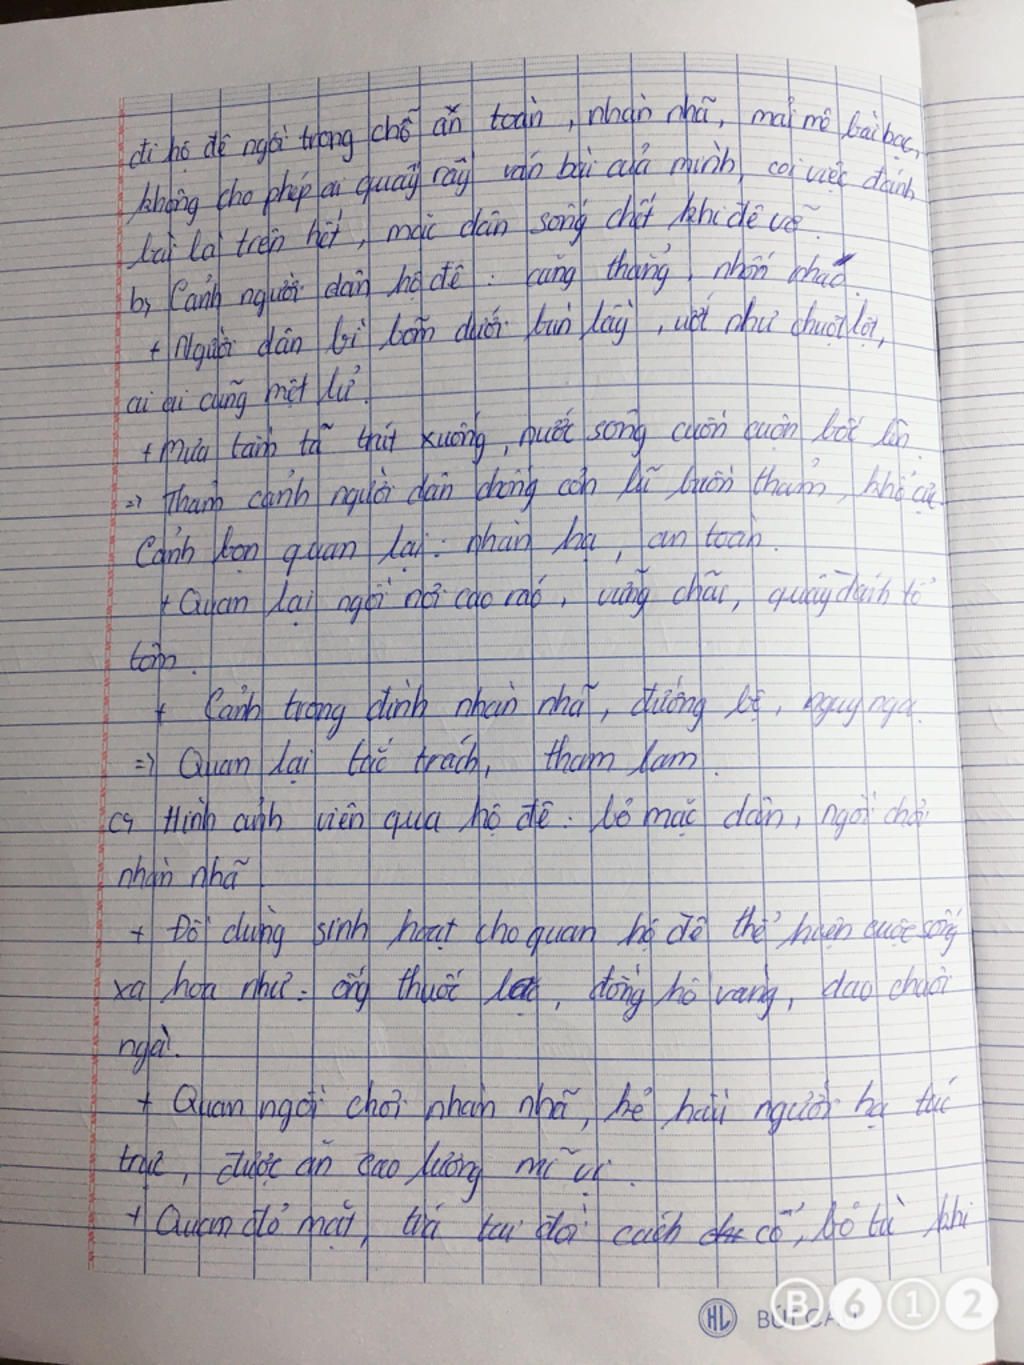 đi hộ đê ngồi trong chỗ an toàn, nhàn nhã, mải mê bài bạc,
không cho phép ai quấy rầy ván bài của mình, coi việc đánh
bài là trên hết, mặc dân sống chết khi đê vỡ.
b, Cảnh người dân hộ đê: căng thẳng, nhốn nháo.
+ Người dân bì bõm dưới bùn lầy, ướt như chuột lột,
ai ai cũng mệt lử.
+ Mưa tầm tã trút xuống, nước sông cuồn cuộn bốc lên.
=> Thảm cảnh người dân chống cơn lũ buồn thảm, khổ cực.
Cảnh bọn quan lại: nhàn hạ, an toàn.
+ Quan lại ngồi nơi cao ráo, vững chãi, quây đánh tổ
tôm.
+ Cảnh trong đình nhàn nhã, đường bệ, nguy nga.
=> Quan lại tắc trách, tham lam.
c, Hình ảnh viên qua hộ đê: bỏ mặc dân, ngồi chơi
nhàn nhã.
+ Đồ dùng sinh hoạt cho quan hộ đê thể hiện cuộc sống
xa hoa như: ống thuốc bạc, đồng hồ vàng, dao chuôi
ngà.
+ Quan ngồi chơi nhàn nhã, kẻ hầu người hạ túc
trực, được ăn cao lương mĩ vị.
+ Quan đỏ mặt, tía tai đòi cách cổ, bỏ tù khi
HL BÚT
B612